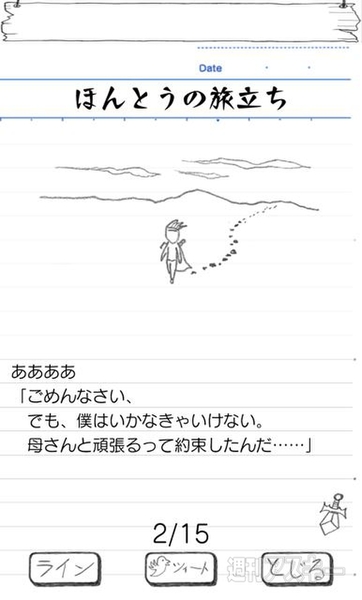 Date
ほんとうの旅立ち
ああああ
「ごめんなさい、
でも、僕はいかなきゃいけない。
母さんと頑張るって約束したんだ……」
2/15
ライン
ツイート
週刊アスキー
とじる